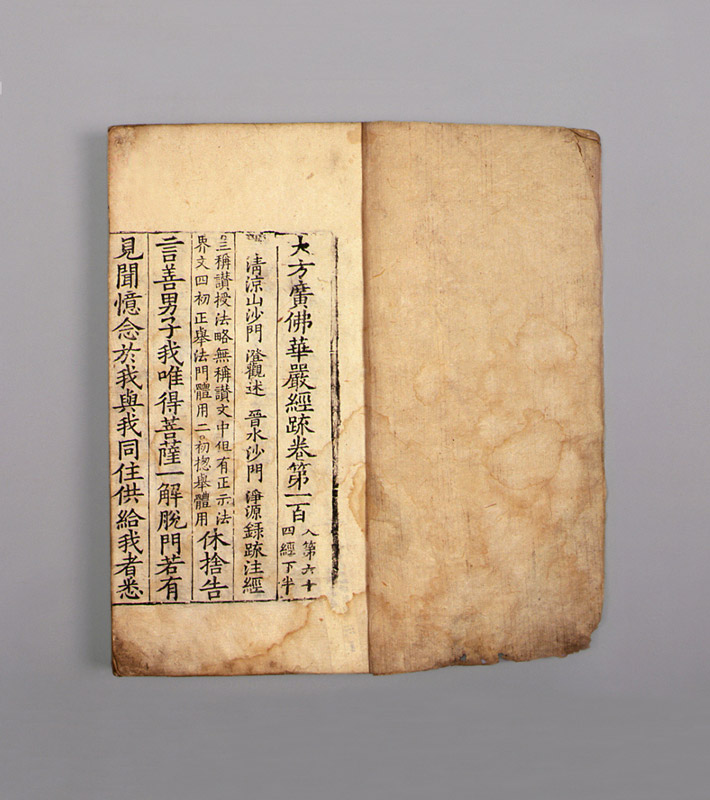 大方廣佛華嚴經䟽卷第一百 入第六十四經下半
清涼山沙門 澄觀述 晉水沙門 淨源録䟽注經
三稱讃授法略無稱讃文中但有正示法
界文四初正舉法門體用二初揔舉體用 休捨告
言善男子我唯得菩薩一解脫門若有
見聞憶念於我與我同住供給我者悉